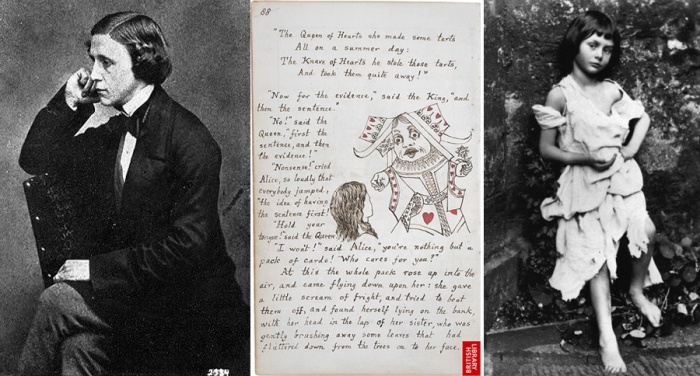 2384
88
"The Queen of Hearts she made some tarts
All on a summer day:
The Knave of Hearts he stole those tarts,
And took them quite away!"
"Now for the evidence," said the King, "and
then the sentence."
"No!" said the
Queen, "first the
sentence, and then
the evidence!"
"Nonsense!" cried
Alice, so loudly that
everybody jumped,
"the idea of having
the sentence first!"
"Hold your
tongue!" said the Queen.
"I won't!" said Alice, "you're nothing but a
pack of cards! Who cares for you?"
At this the whole pack rose up into the
air, and came flying down upon her: she gave
a little scream of fright, and tried to beat
them off, and found herself lying on the bank,
with her head in the lap of her sister, who was
gently brushing away some leaves that had
fluttered down from the trees on to her face.
BRITISH
LIBRARY